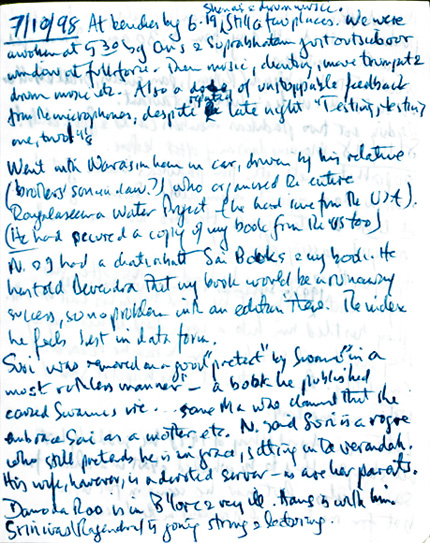 Shenais & drum music.
7/10/98 At benches by 6.19, still a few places. We were
awoken at 4.30 by Om's & Suprabhatam just outside our
window at full force. Then music, chanting, more trumpet &
drum music etc. Also a dose of unstoppable feedback
from the microphones, despite repeated late night "Testing, testing
one, two"s
Went with Narasimhan in car, driven by his relative
(brother's son in law?), who organised the entire
Rayalaseema Water Project (he had come from the USA).
(He had secured a copy of my book from the US too)
N. & I had a chat about Sai Books & my book. He
has told Devendra that my book would be a runaway
success, so no problem with an edition there. The index
he feels best in data form.
Suri who was removed as a good "pretext" by Swami "in a
most ruthless manner" - a book he published
called Swami's vie... some Ma who claimed that she
embraced Sai as a mother etc. N. said Suri is a rogue
who still pretends he is in grace, sitting on the verandah.
His wife, however, is a devoted server - as are her parents.
Damoda Rao is in B'lore & very ill. Hans is with him
Srinivas (Rajendra) is going strong & lecturing.